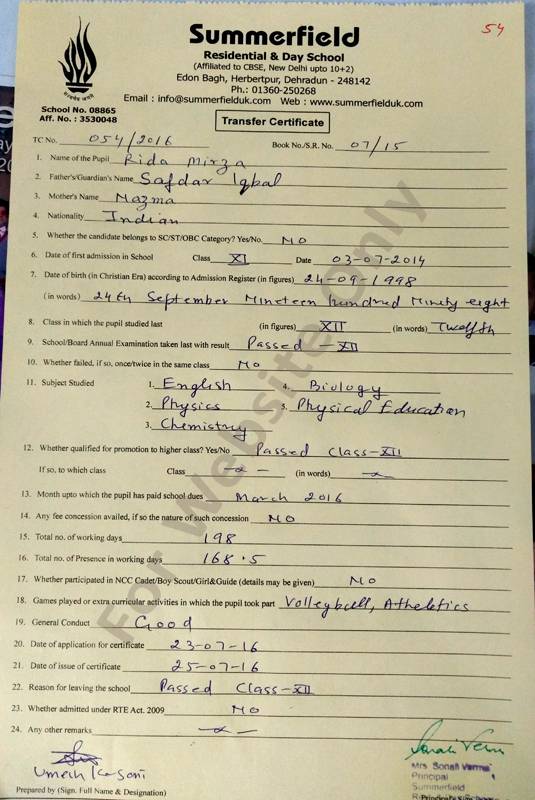 54
Summerfield
Residential & Day School
(Affiliated to CBSE, New Delhi upto 10+2)
Edon Bagh, Herbertpur, Dehradun - 248142
Ph.: 01360-250268
Email : info@summerfielduk.com Web : www.summerfielduk.com
School No. 08865
Aff. No. : 3530048
Transfer Certificate
TC No. 054/2016 Book No./S.R. No. 07/15
1. Name of the Pupil Rida Mirza
2. Father's/Guardian's Name Safdar Iqbal
3. Mother's Name Nazma
4. Nationality Indian
5. Whether the candidate belongs to SC/ST/OBC Category? Yes/No. NO
6. Date of first admission in School Class XI Date 03-07-2014
7. Date of birth (in Christian Era) according to Admission Register (in figures) 24-09-1998
(in words) 24th September Nineteen hundred Ninty eight
8. Class in which the pupil studied last (in figures) XII (in words) Twelfth
9. School/Board Annual Examination taken last with result Passed - XII
10. Whether failed, if so, once/twice in the same class NO
11. Subject Studied 1. English 4. Biology
2. Physics 5. Physical Education
3. Chemistry
12. Whether qualified for promotion to higher class? Yes/No Passed Class-XII
If so, to which class Class (in words)
13. Month upto which the pupil has paid school dues March 2016
14. Any fee concession availed, if so the nature of such concession NO
15. Total no. of working days 198
16. Total no. of Presence in working days 168.5
17. Whether participated in NCC Cadet/Boy Scout/Girl&Guide (details may be given) NO
18. Games played or extra curricular activities in which the pupil took part Volleyball, Atheletics
19. General Conduct Good
20. Date of application for certificate 23-07-16
21. Date of issue of certificate 25-07-16
22. Reason for leaving the school Passed Class-XII
23. Whether admitted under RTE Act. 2009 NO
24. Any other remarks
For Website Only
Mrs Sonali Verma
Principal
Summerfield
Umesh
Prepared by (Sign. Full Name & Designation)